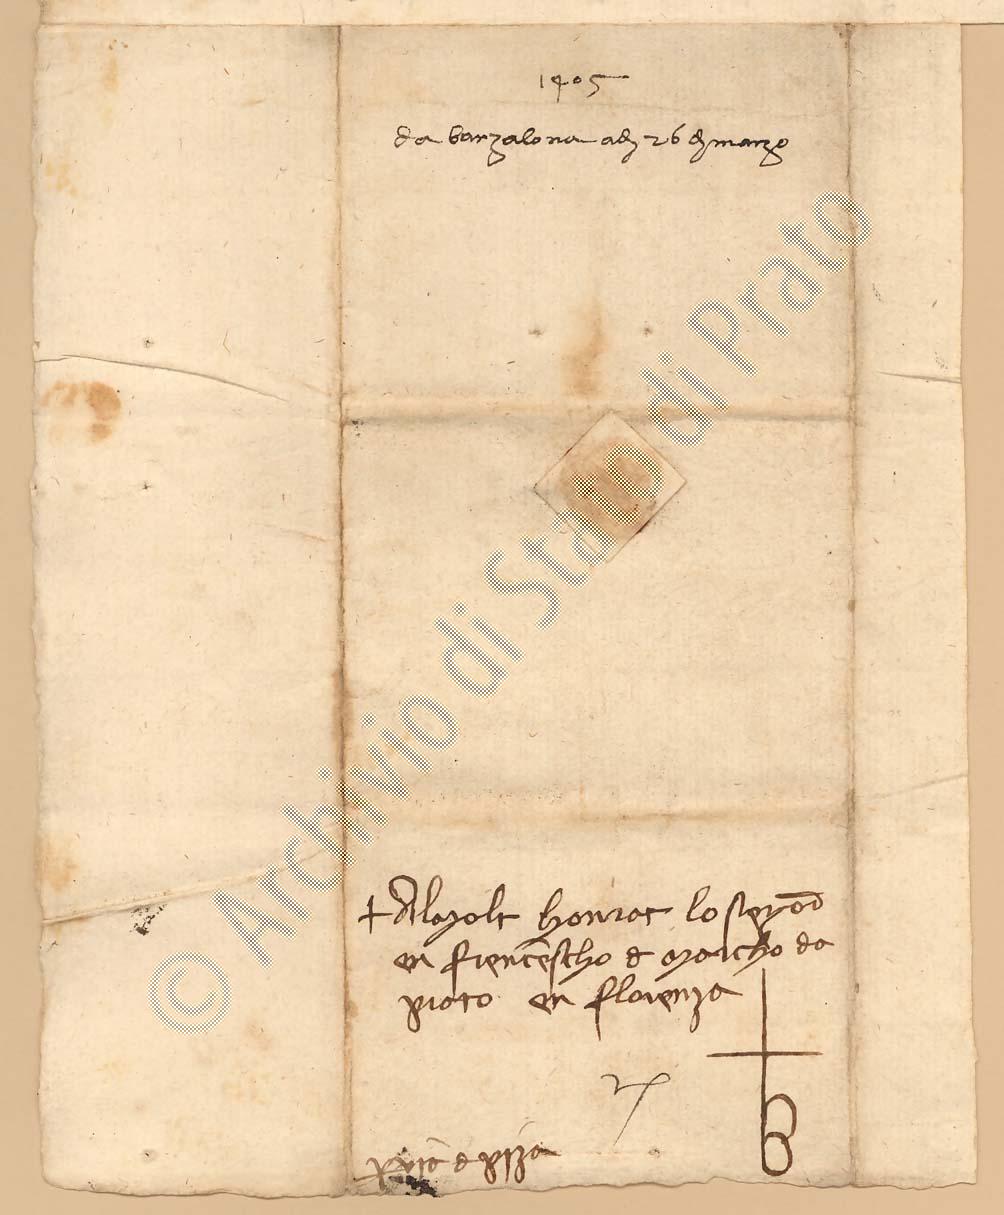 1405
da barzalona adj 26 dj marzo
© Archivio di Stato di Prato
+ Al molt honrat lo senyor
en francescho de marcho da
prato en florenza
de piza